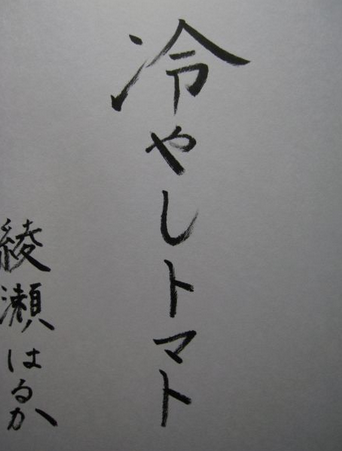 冷やしトマト
綾瀬はるか